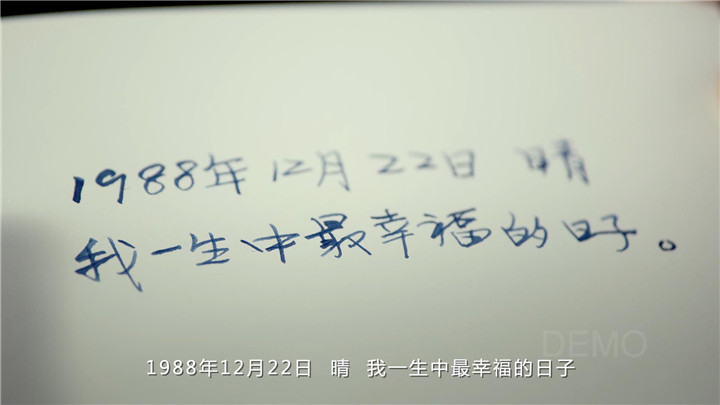 1988年12月22日 晴
我一生中最幸福的日子。
DEMO
1988年12月22日 晴 我一生中最幸福的日子